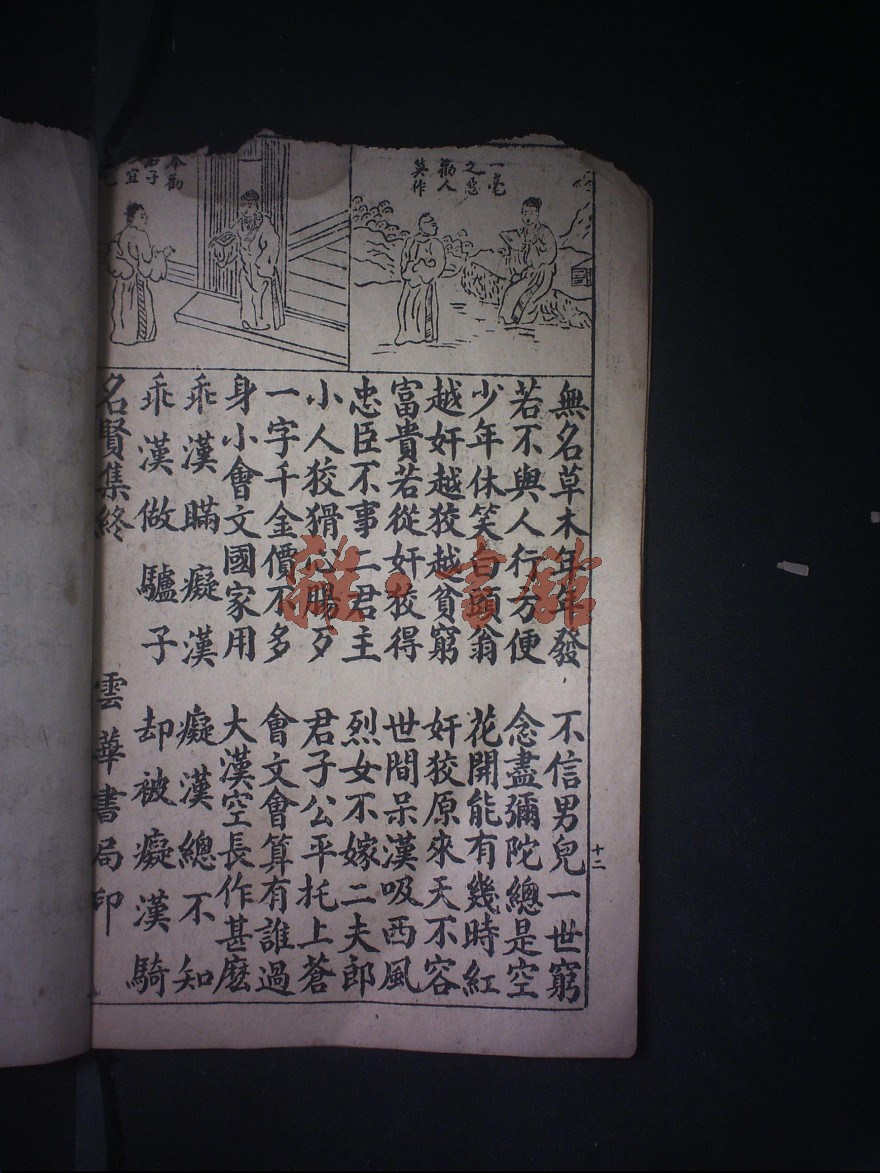 一毫
之惡
勸人
莫作
奉勸
君子
宜
無名草木年年發 不信男兒一世窮
若不與人行方便 念盡彌陀總是空
少年休笑白頭翁 花開能有幾時紅
越奸越狡越貧窮 奸狡原來天不容
富貴若從奸狡得 世間呆漢吸西風
忠臣不事二君主 烈女不嫁二夫郎
小人狡猾心腸歹 君子公平托上蒼
一字千金價不多 會文會算有誰過
身小會文國家用 大漢空長作甚麽
乖漢瞞癡漢 癡漢總不知
乖漢做驢子 却被癡漢騎
名賢集終 雲華書局印
十二
雜·書館